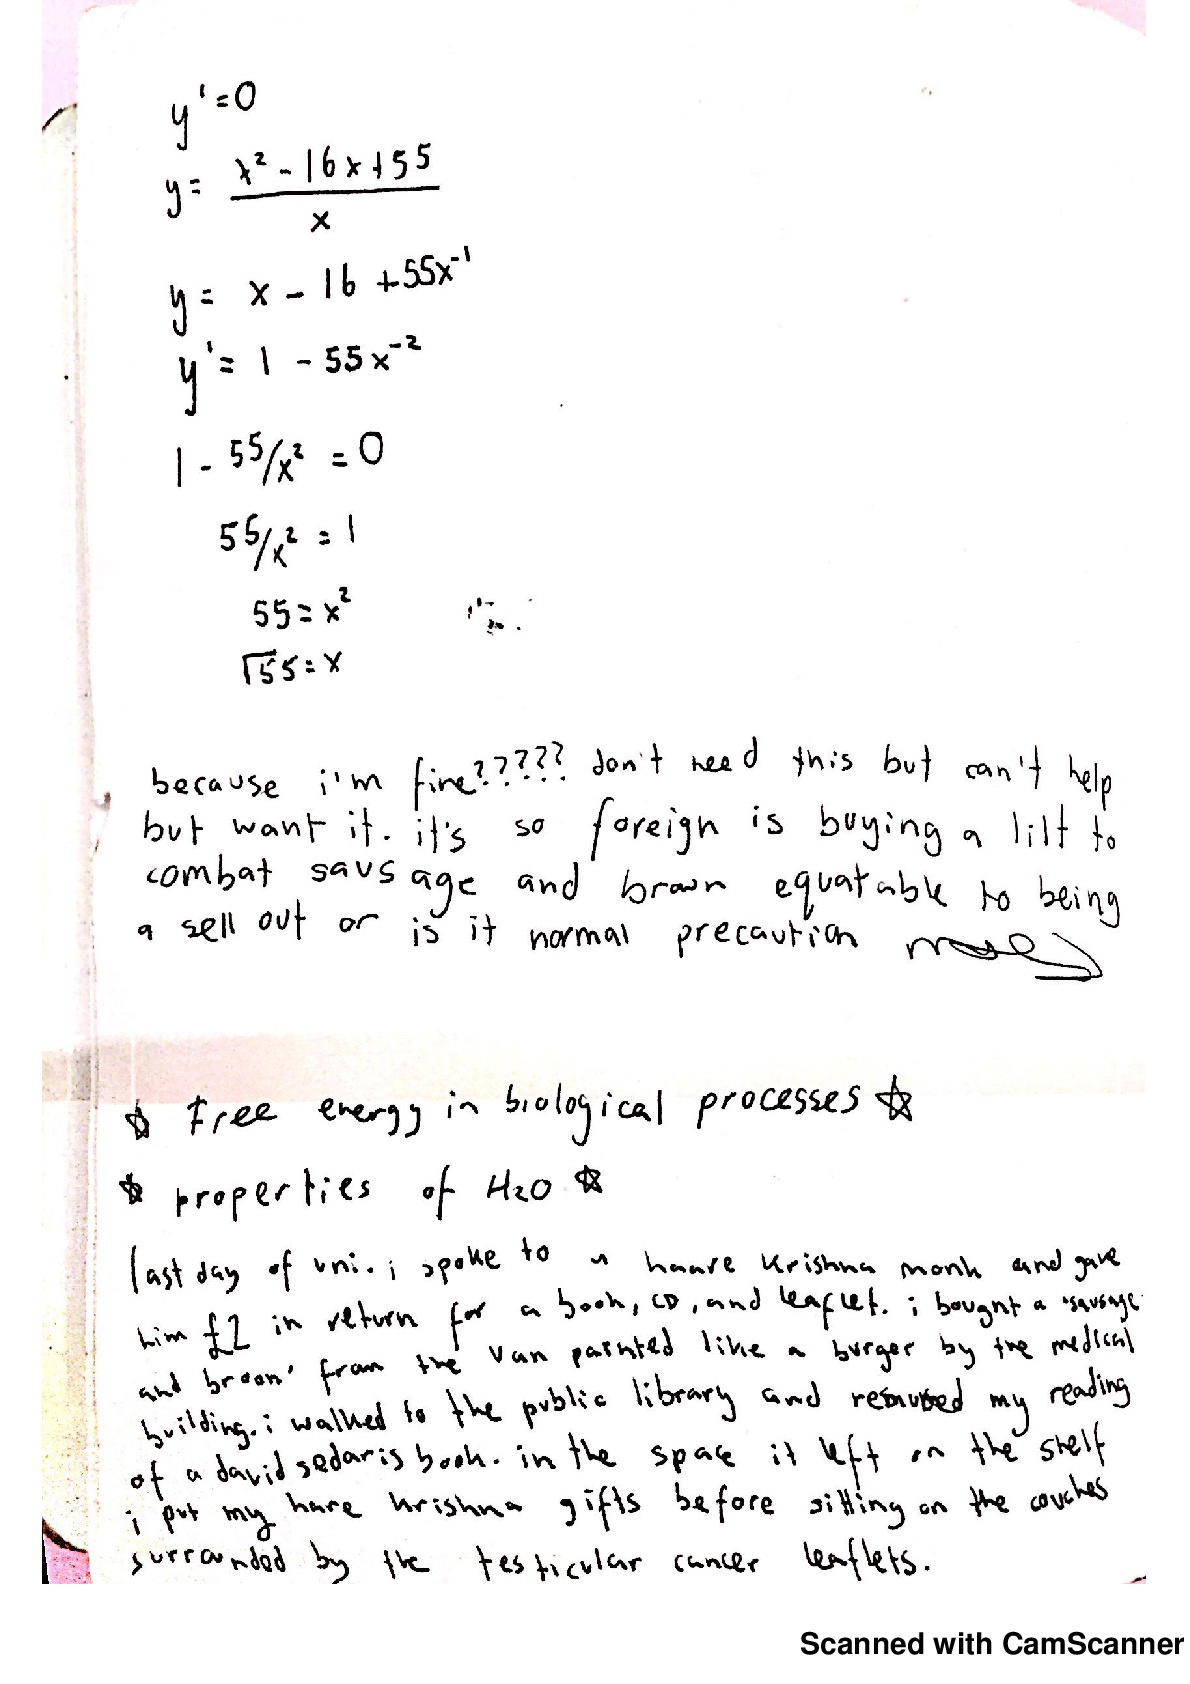 y'=0
y= x² - 16x+55
x
y = x - 16 +55x⁻¹
y'= 1 - 55x⁻²
1 - 55/x² = 0
55/x² = 1
55 = x²
√55 = x
because i'm fine????? don't need this but can't help
but want it. it's so foreign is buying a lilt to
combat sausage and brown equatable to being
a sell out or is it normal precaution
☆ Free energy in biological processes ☆
☆ properties of H2O ☆
last day of uni. i spoke to a haare Krishna monk and gave
him £2 in return for a book, CD, and leaflet. i bought a 'sausage
and broon' from the van painted like a burger by the medical
building. i walked to the public library and resumed my reading
of a david sedaris book. in the space it left on the shelf
i put my hare krishna gifts before sitting on the couches
surrounded by the testicular cancer leaflets.
Scanned with CamScanner